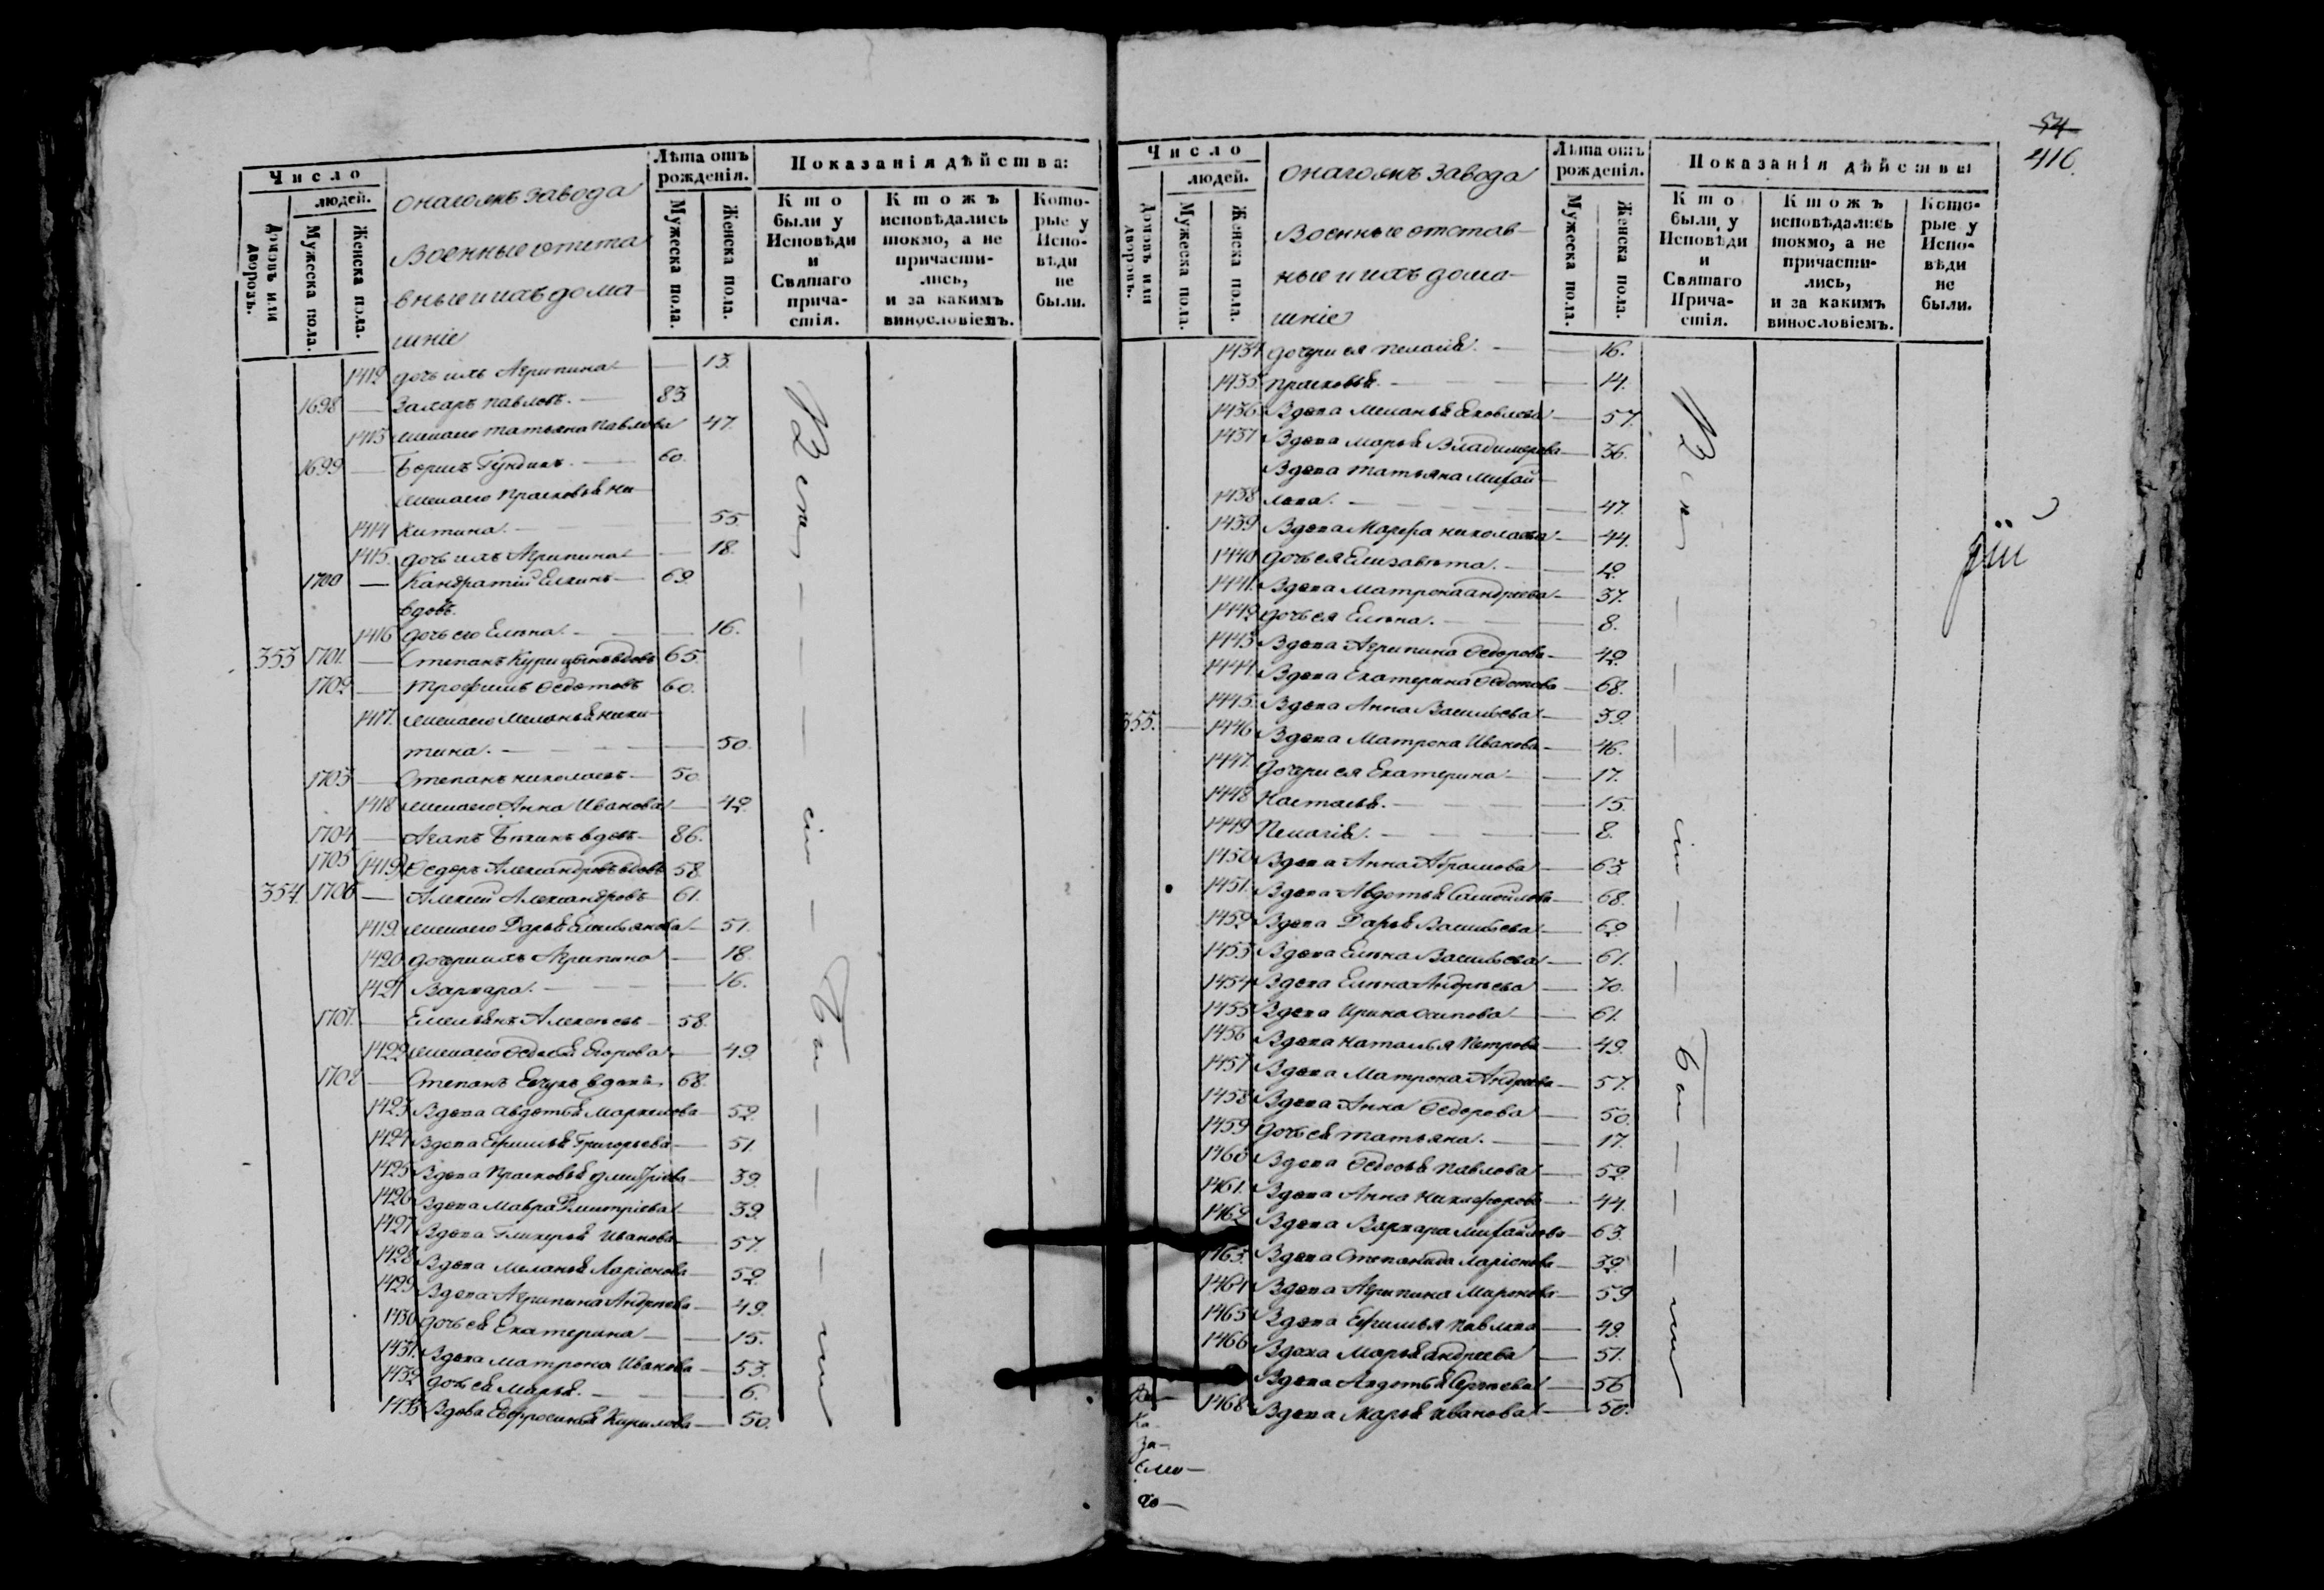 Число
людей.
Домовъ или дворовъ.
Мужеска пола.
Женска пола.
онагожъ завода
Военные отста
вные и ихъ дома-
шніе
Лѣта отъ рожденія.
Мужеска пола.
Женска пола.
Показанія дѣйства:
Кто были у Исповѣди и Святаго причастія.
Ктожъ исповѣдались токмо, а не причастились, и за какимъ винословіемъ.
Которые у Исповѣди не были.
1412 дочь ихъ Агрипина — 13.
1698 — Захаръ Павловъ. — 83
1413 жена его Татьяна Павлова 47.
1699 — Борисъ — 60.
жена его Прасковья Ни-
1414 китина. — 55
1415. дочь ихъ Агрипина — 18.
1700 — Кандратій — 69.
вдовъ.
1416 дочь его Елена. — 16.
353 1701. — Степанъ Курицынъ вдовъ 65.
1702 — Трофимъ Федотовъ 60.
1417. жена его Меланья Ники-
тина. — 50.
1703 — Степанъ Николаевъ — 50
1418 жена его Анна Иванова — 42.
1704 — Агапъ вдовъ — 86.
1705 (1419) Федоръ Александровъ вдовъ 58
354. 1706 — Алексей Александровъ — 61.
1419. жена его Дарья Емельянова — 51.
1420 дочери ихъ Агрипина — 18.
1421 Варвара. — 16.
1707. — Емельянъ Алексеевъ — 58.
1422 жена его Федосья Егорова — 49.
1708 — Степанъ вдовъ 68.
1423 Вдова Авдотья Маркелова — 52.
1424 Вдова Ефимья Григорьева — 51.
1425 Вдова Прасковья Дмитріева — 39.
1426 Вдова Мавра Дмитріева — 39.
1427 Вдова Гликерья Иванова — 57.
1428 Вдова Меланья Ларіонова — 52.
1429 Вдова Агрипина Андреева — 49.
1430 дочь ея Екатерина — 15.
1431. Вдова Матрона Иванова — 53.
1432 дочь ея Марья. — 6.
1433 Вдова Евфросинья Кирилова — 50.
54
416.
Число
людей.
Домовъ или дворовъ.
Мужеска пола.
Женска пола.
онагожъ завода
Военные отстав-
ные и ихъ дома-
шніе
Лѣта отъ рожденія.
Мужеска пола.
Женска пола.
Показанія дѣйства
Кто были у Исповѣди и Святаго Причастія.
Ктожъ исповѣдались токмо, а не причастились, и за какимъ винословіемъ.
Которые у Исповѣди не были.
1434 дочери ея Пелагія. — 16.
1435. Прасковья. — 14.
1436 Вдова Меланья Яковлева — 57.
1437 Вдова Марья Владимерова — 36.
Вдова Татьяна Михай-
1438 лова. — 47.
1439 Вдова Марфа Николаева — 44.
1440 дочь ея Елизавета. — 12.
1441. Вдова Матрона Андреева — 37.
1442 дочь ея Елена. — 8.
1443 Вдова Агрипина Федорова — 42.
1444 Вдова Екатерина Федотова — 68.
1445. Вдова Анна Васильева — 39.
355. — 1446 Вдова Матрона Иванова — 46.
1447. дочери ея Екатерина — 17.
1448 Настасья. — 15.
1449 Пелагія. — 8.
1450 Вдова Анна Абрамова — 63.
1451. Вдова Авдотья Самойлова — 68.
1452 Вдова Дарья Васильева — 62.
1453 Вдова Елена Васильева — 61.
1454 Вдова Елена Андреева — 70.
1455 Вдова Ирина Осипова — 61.
1456 Вдова Наталья Петрова — 49.
1457 Вдова Матрона Андреева — 57.
1458 Вдова Анна Федорова — 50.
1459 дочь ея Татьяна. — 17.
1460 Вдова Федосья Павлова — 52.
1461. Вдова Анна Никифорова — 44.
1462 Вдова Варвара Михайлова — 63.
1463. Вдова Степанида Ларіонова — 32.
1464 Вдова Агрипина Миронова — 59
1465 Вдова Ефимья Павлова — 49.
1466 Вдова Марья Андреева — 51.
Вдова Авдотья Сергеева — 56
1468 Вдова Марья Иванова — 50.